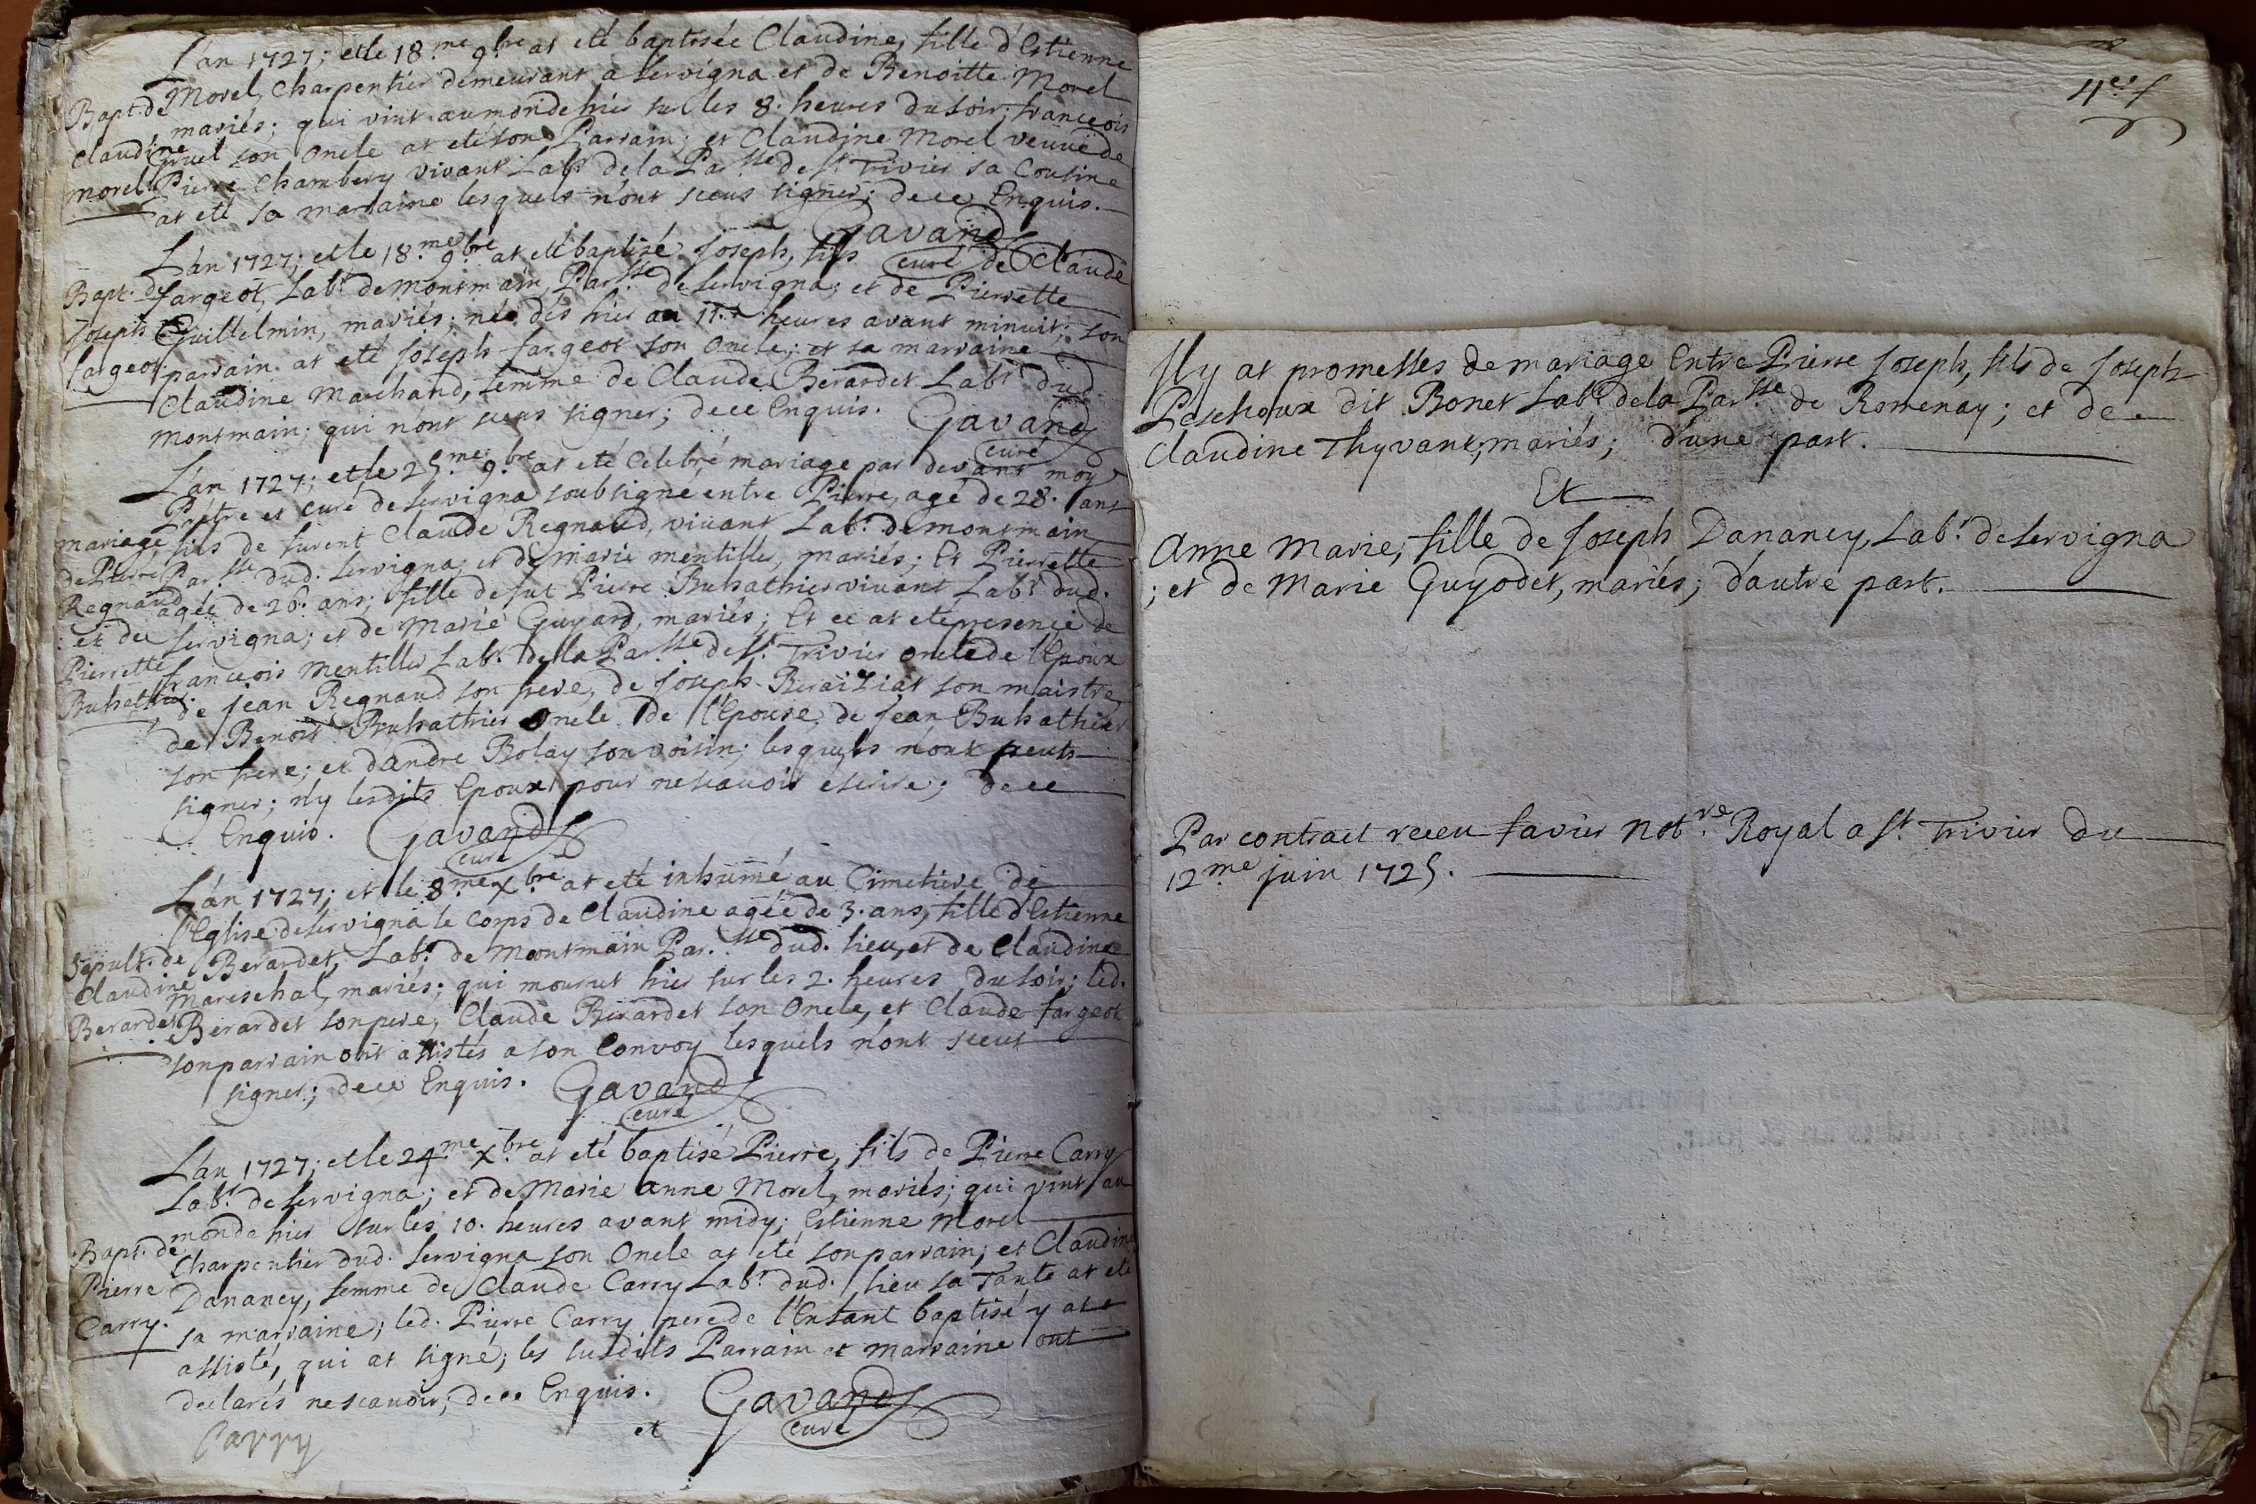 L'an 1727; et le 18.me 9.bre at eté baptisée Claudine, fille d'Estienne
Morel, Charpentier demeurant a Servigna et de Benoitte Morel
mariés; qui vint au monde hier sur les 8. heures du soir; franceois
son Oncle at eté son Parrain; et Claudine Morel veuve de
Pierre Chambery vivant Lab.r de la Par.sse de S.t Trivier sa Cousine
at eté sa marraine lesquels n'ont sceus signer; de ce Enquis.
Bapt. de
Claudine
Morel
Gavand
curé
L'an 1727; et le 18.me 9.bre at eté baptisé Joseph, fils de Claude
fargeot, Lab.r de montmain, Par.sse de Servigna; et de Pierrette
Guillelmin, mariés; née dés hier au 11. heures avant minuit; son
parrain at eté Joseph fargeot son Oncle; et sa marraine
Claudine Marchand, femme de Claude Berardet Lab.r dud.
montmain; qui n'ont sceus signer; de ce Enquis.
Bapt. de
Joseph
fargeot
Gavand
curé
L'an 1727; et le 25.me 9.bre at eté Celebré mariage par devant moy
Prêtre et curé de Servigna soubsigné entre Pierre, agé de 28. ans
fils de furent Claude Regnaud, vivant Lab.r de montmain
Par.sse dud. Servigna; et de marie mentillier, mariés; Et Pierrette
agée de 26. ans; fille de fut Pierre Buhathier vivant Lab.r dud.
Servigna; et de Marie Guyard, mariés; Et ce at eté presence de
franceois Mentillier Lab.r de la Par.sse de S.t Trivier oncle de l'Epoux
de jean Regnaud son frere, de Joseph Beraiziat son maistre,
de Benoist Buhathier Oncle de l'Epouse, de Jean Buhathier
son frere; et d'andre Bolay son voisin; lesquels n'ont sceuts
signer; n'y lesdits Epoux pour ne scavoir escrire; de ce
Enquis.
mariage
de Pierre
Regnaud
et de
Pierrette
Buhathier.
Gavand
curé
L'an 1727; et le 8.me X.bre at eté inhumé au Cimetiere de
l'Eglise de Servigna le Corps de Claudine agée de 3. ans, fille d'Estienne
Berardet, Lab.r de Montmain Par.sse dud. lieu, et de Claudine
Mareschal, mariés; qui mourut hier sur les 2. heures du soir; led.
Berardet son pere, Claude Berardet son Oncle, et Claude fargeot
son parrain ont assistés a son Convoy lesquels n'ont sceut
signer; de ce Enquis.
Sepult. de
Claudine
Berardet
Gavand
curé
L'an 1727; et le 24.me X.bre at eté baptisé Pierre, fils de Pierre Carry
Lab.r de Servigna; et de Marie anne Morel, mariés; qui vint au
monde hier sur les 10. heures avant midy; Estienne Morel
Charpentier dud. Servigna son Oncle at eté son parrain; et Claudine
Dananey, femme de Claude Carry Lab.r dud. lieu sa Tante at eté
sa marraine; led. Pierre Carry pere de l'Enfant baptisé y at
assisté, qui at signé; les susdits Parrain et marraine ont
declarés ne scavoir; de ce Enquis.
Bapt. de
Pierre
Carry.
Gavand
curé
et
Carry
Il y at promesses de mariage Entre Pierre Joseph, fils de Joseph
Peschoux dit Bonet Lab.r de la Par.sse de Romenay; et de
Claudine Thyvant, mariés; d'une part.
Et
Anne Marie, fille de Joseph Dananey, Lab.r de Servigna
; et de Marie Guyodet, mariés; d'autre part.
Par contract receu favier Not.re Royal a S.t Trivier du
12.me juin 1725.